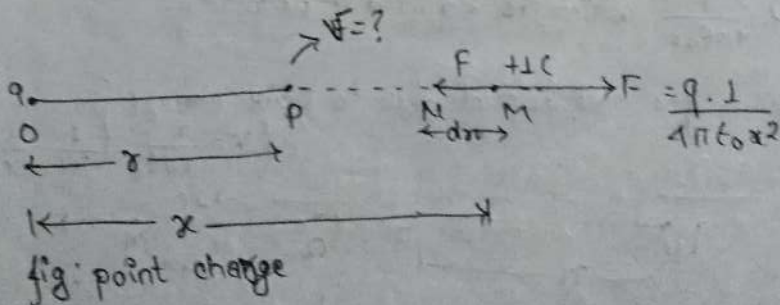 V=?
F +1C
q. F = q.1 / 4πϵ₀x²
O P N M
dx
r
x
fig: point charge